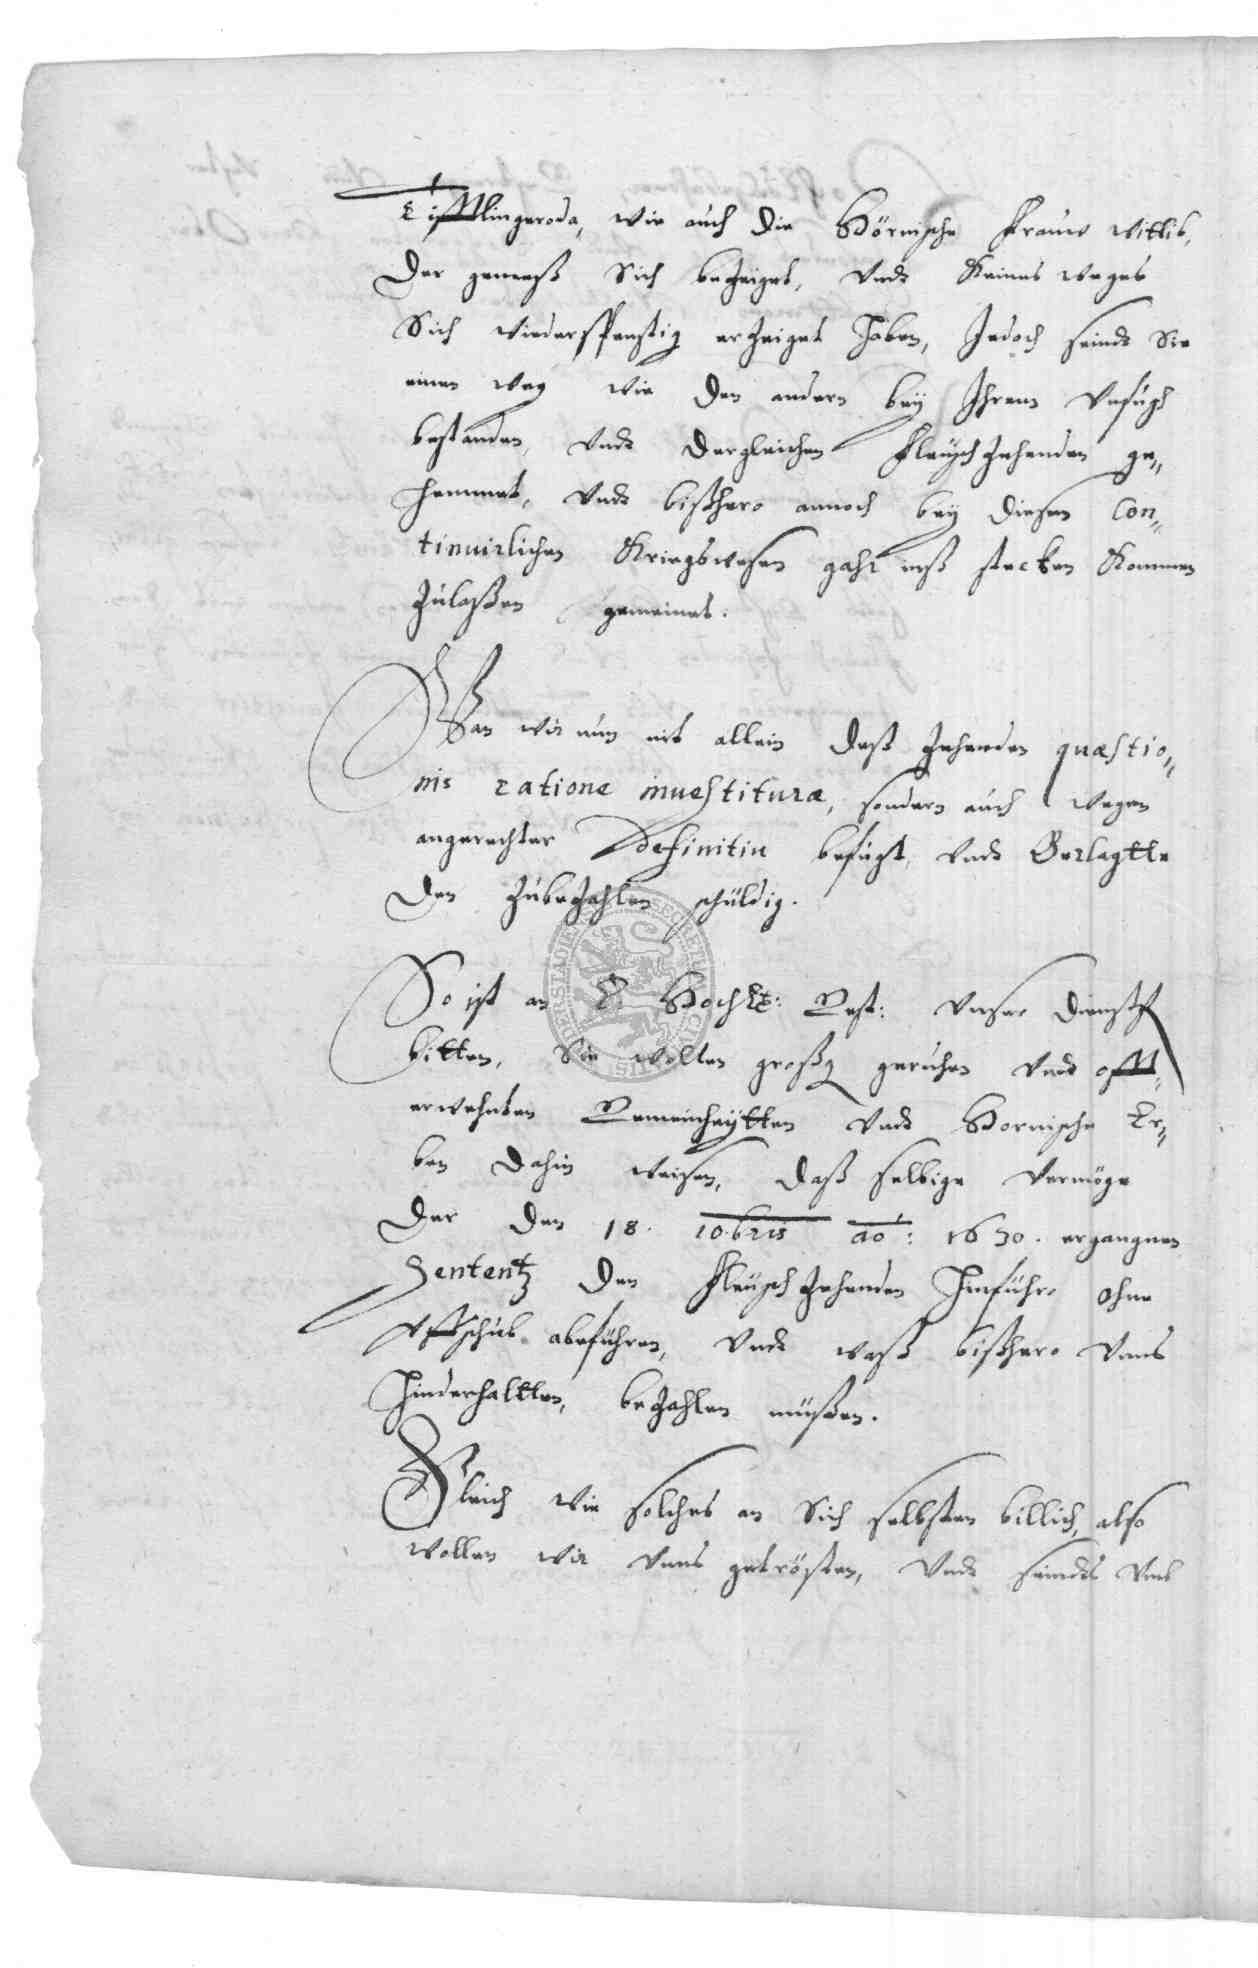 Tifftlingeroda, wie auch die Hörnische Frauw wittib,
der gemeeß Sich bezeiget, undt Keines weges
Sich wiederspenstig erzeiget haben, Jedoch seindt Sie
einen weg wie den andern bey Ihrem Unfugh
bestanden, undt dergleichen Fleyschzehenden ge„
hemmet, undt bißhero annoch bey diesem Con„
tinuirlichen Kriegswesen gahr inß stecken Kommen
Zulaßen gemeinet.
Wan wir nun nit allein deß Zehenden quæstio„
nis ratione inuestituræ, sondern auch wegen
angerechter Definitiu befugt, undt Beclagtte
den Zubezahlen schuldig.
So ist an E. Hochl: Gest: unser dienstl
bitten, Sie wollen großg geruhen undt offt„
erwehnten Gemeinheytten undt Hornische Er„
ben dahin weisen, daß selbige vermöge
der den 18. 10.bris ao: 1630. ergangnen
Sententz den Fleyschzehenden hinführo ohne
uffschub abeführen, undt waß bißhero unns
hinderhaltten, bezahlen müßen.
Gleich wie solches an Sich selbsten billich, also
wollen wir unns getrösten, undt seindts umb